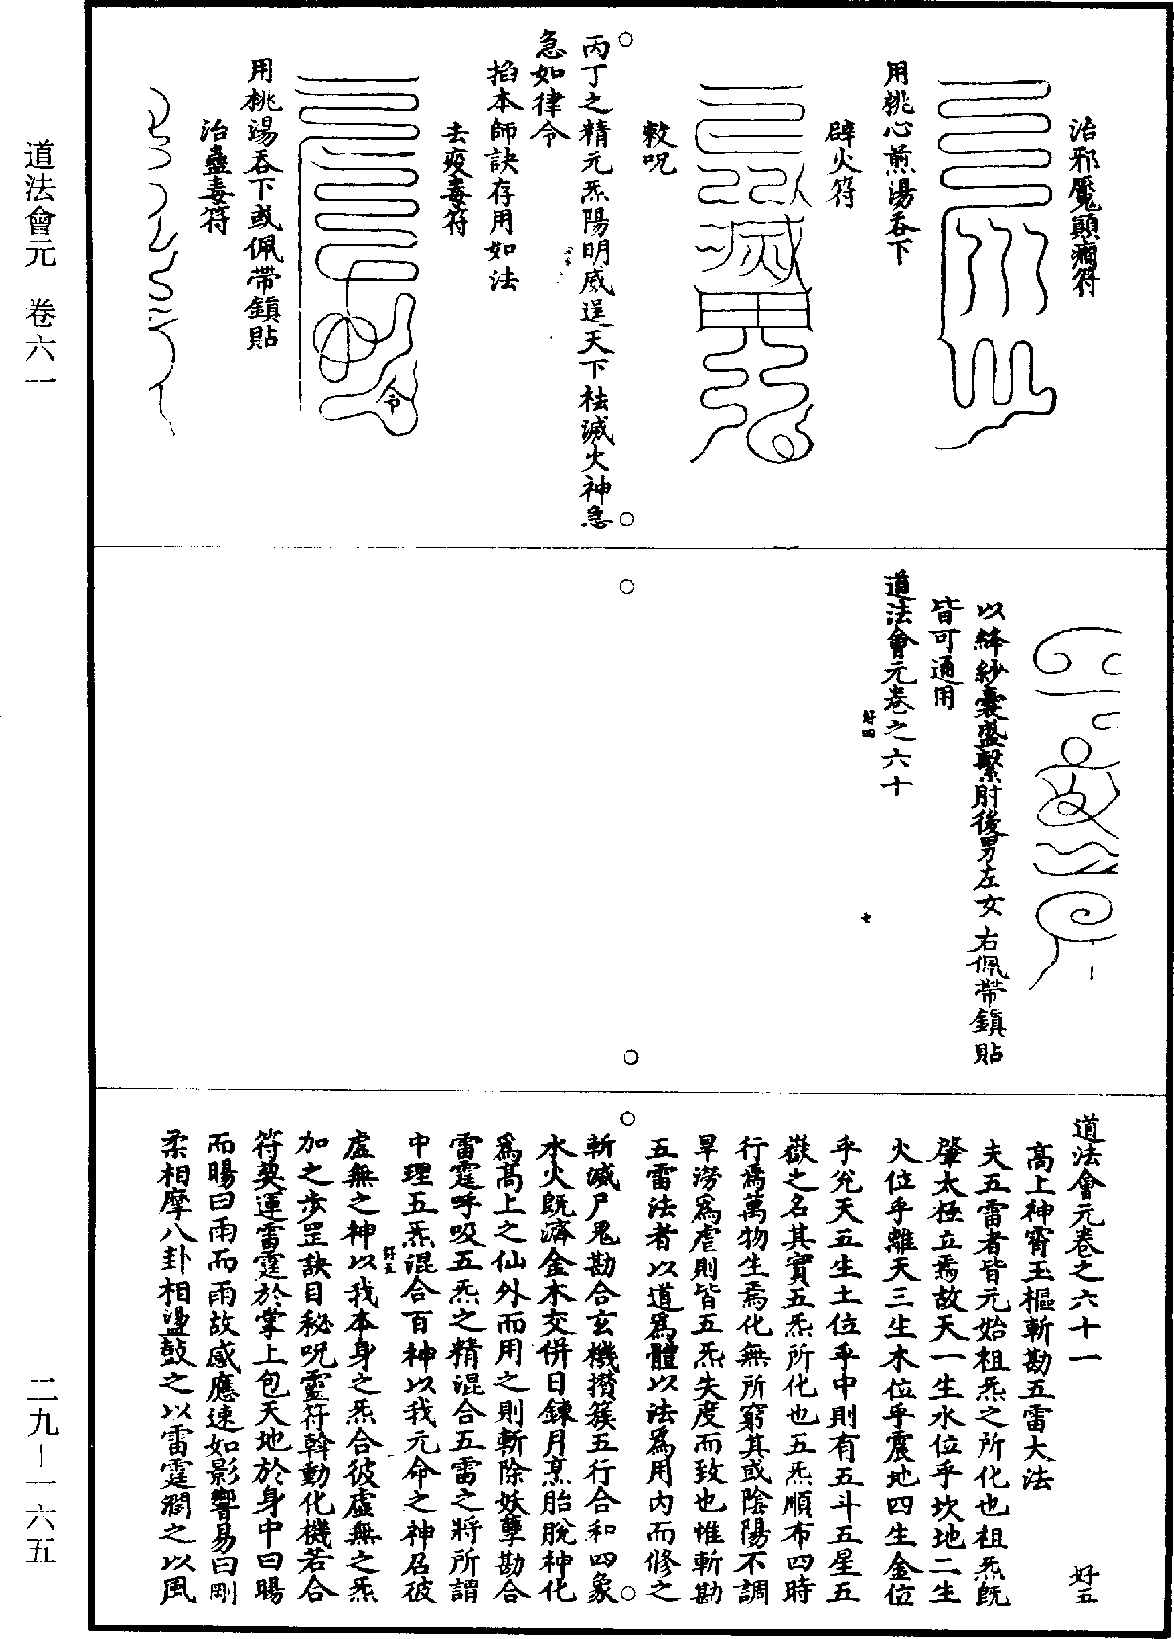 道法會元　卷六一
二九－一六五
治邪魔顛癇符
用桃心煎湯吞下
辟火符
敕呪
丙丁之精元炁陽明威逞天下祛滅火神急
急如律令
掐本師訣存用如法
去疫毒符
令
用桃湯吞下或佩帶鎮貼
治蠱毒符
以絳紗囊盛繫肘後男左女右佩帶鎮貼
皆可通用
道法會元卷之六十
好四
七
道法會元卷之六十一
好五
高上神霄玉樞斬勘五雷大法
夫五雷者皆元始祖炁之所化也祖炁既
肇太極立焉故天一生水位乎坎地二生
火位乎離天三生木位乎震地四生金位
乎兌天五生土位乎中則有五斗五星五
嶽之名其實五炁所化也五炁順布四時
行焉萬物生焉化無所窮其或陰陽不調
旱澇為虐則皆五炁失度而致也惟斬勘
五雷法者以道為體以法為用內而修之
斬滅尸鬼勘合玄機攢簇五行合和四象
水火既濟金木交併日鍊月烹胎脫神化
為高上之仙外而用之則斬除妖孽勘合
雷霆呼吸五炁之精混合五雷之將所謂
中理五炁混合百神以我元命之神召彼
好五
虛無之神以我本身之炁合彼虛無之炁
加之步罡訣目秘呪靈符斡動化機若合
符契運雷霆於掌上包天地於身中曰暘
而暘曰雨而雨故感應速如影響易曰剛
柔相摩八卦相盪鼓之以雷霆潤之以風